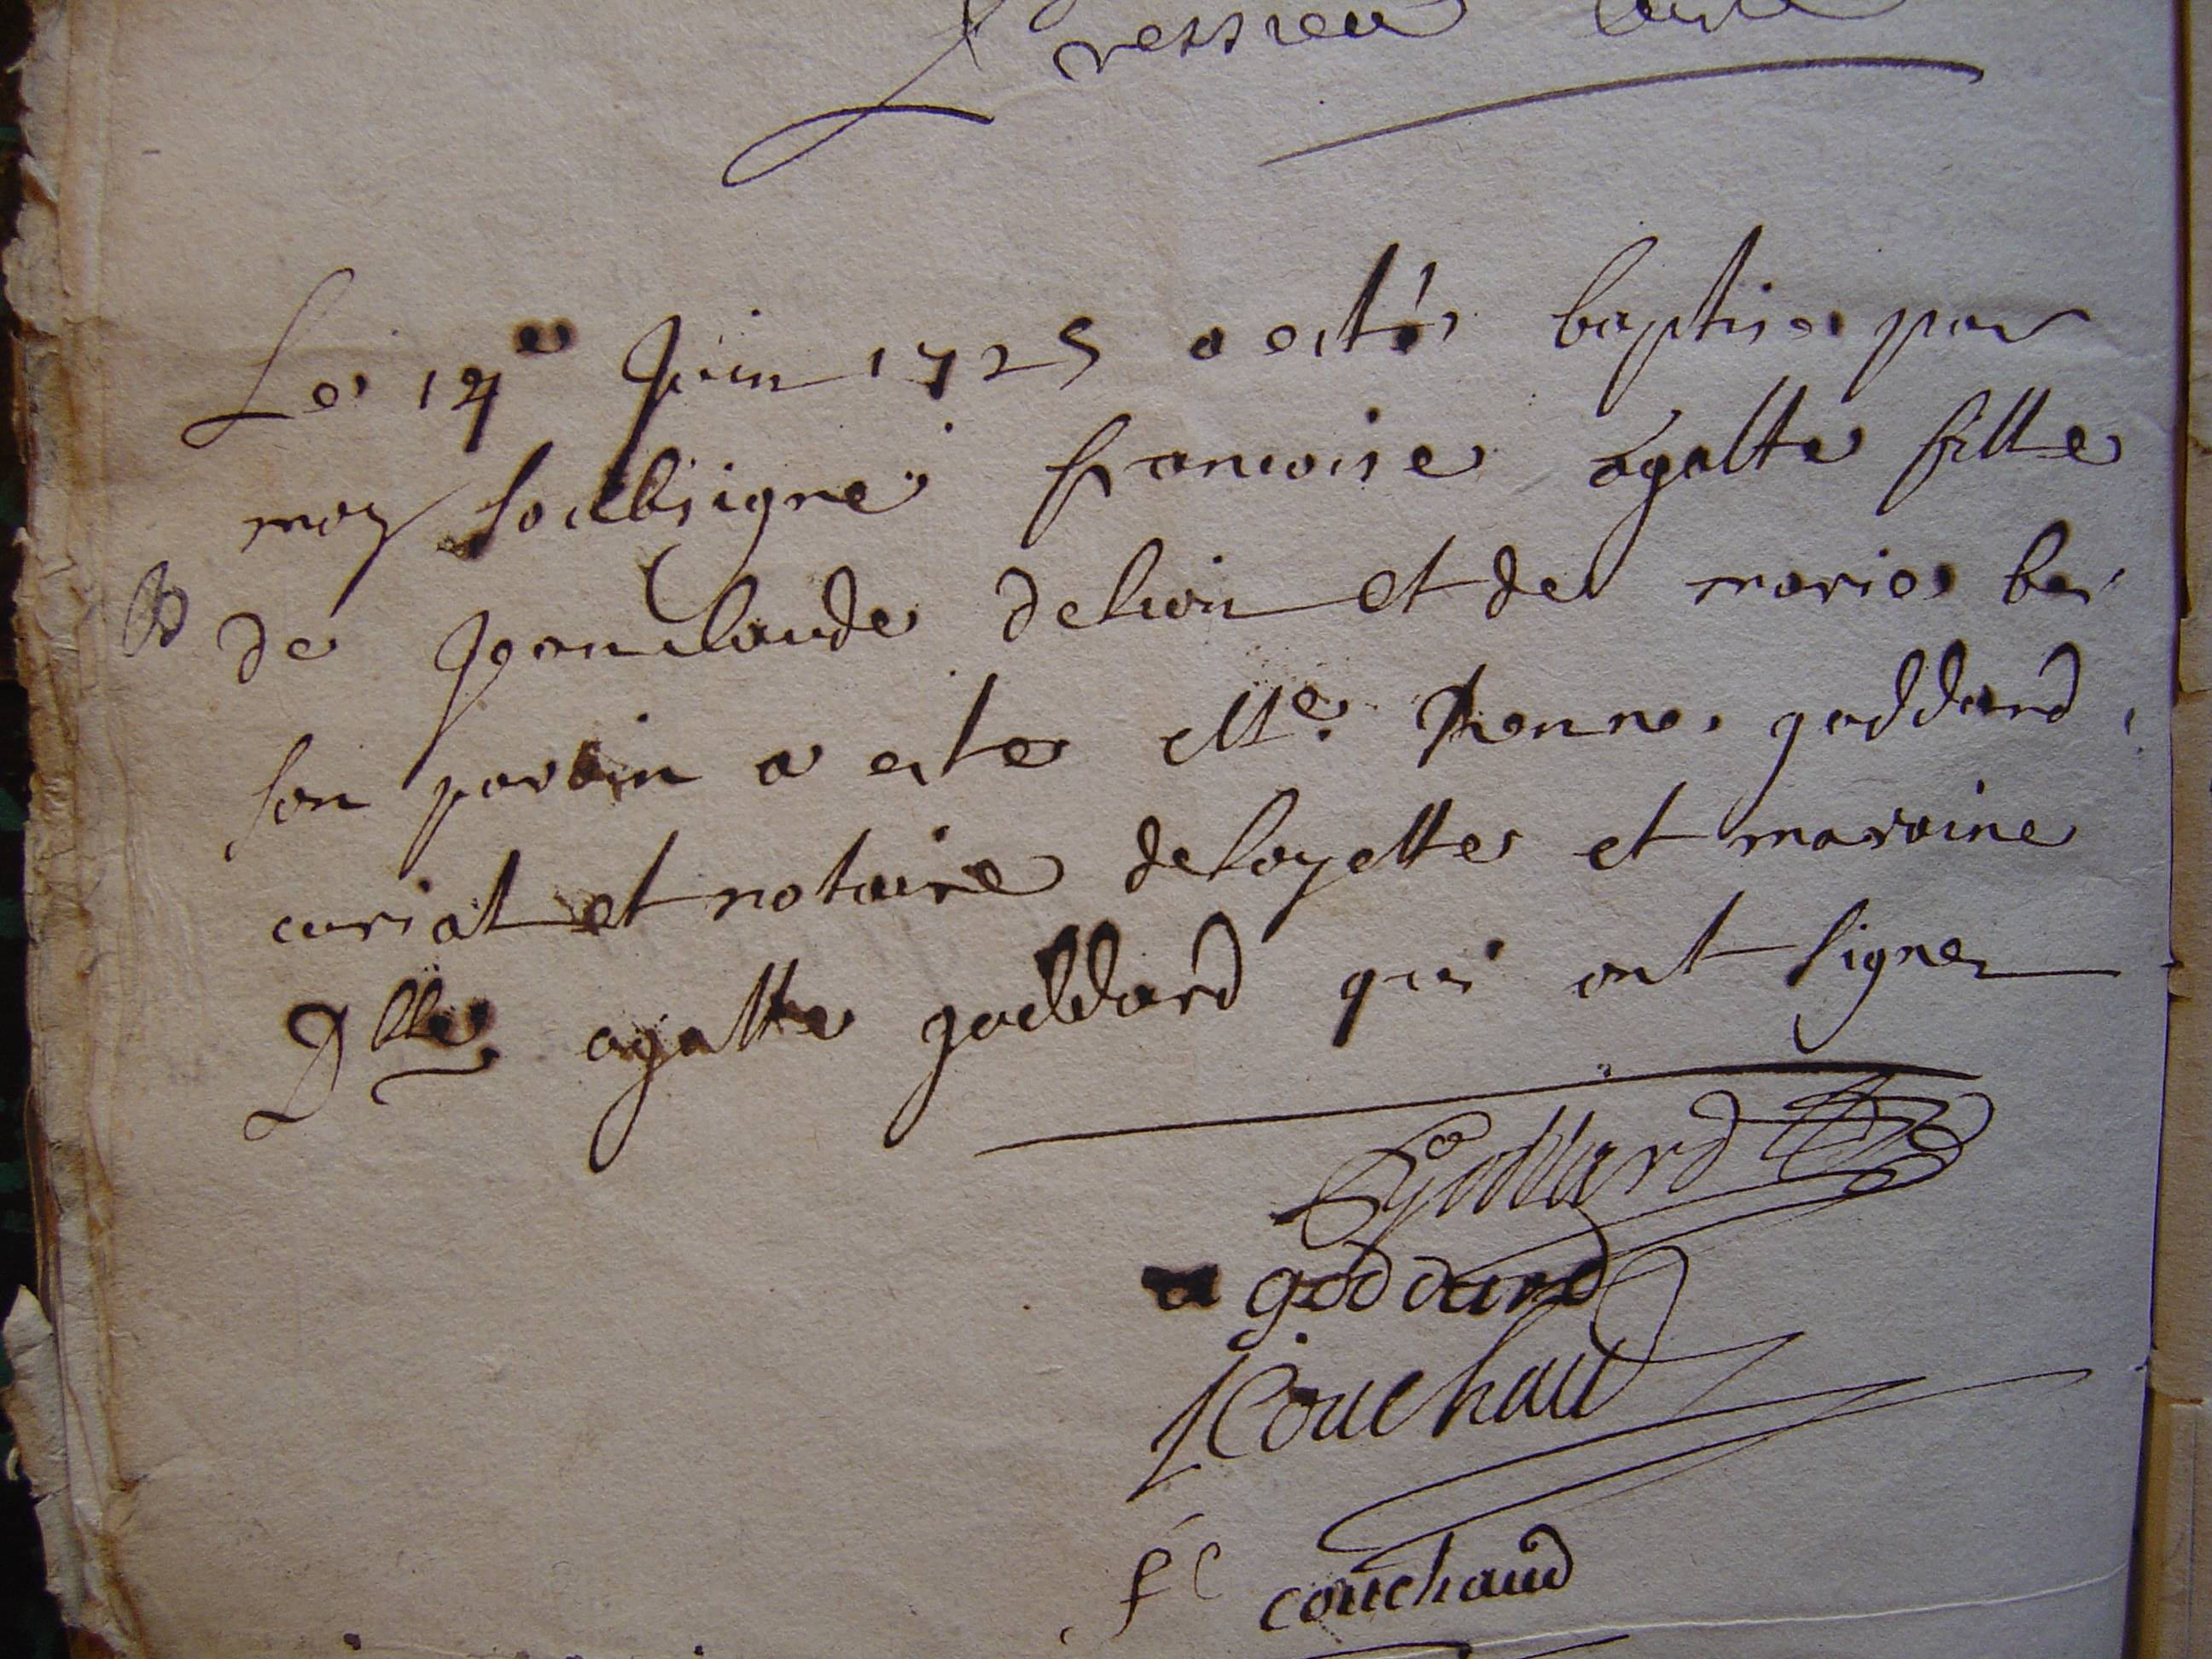 Pressieu curé
Le 14e Juin 1725 a estés baptisé par
moy soubsigné francoise agatte fille
B de Jeanclaude deluoin et de marie be
son parain a este Me. Pienne goddard
curial et notaire de loyettes et maraine
Dlle agatte goddard qui ont signe
goddard
a goddard
Couchaud
fC couchaud